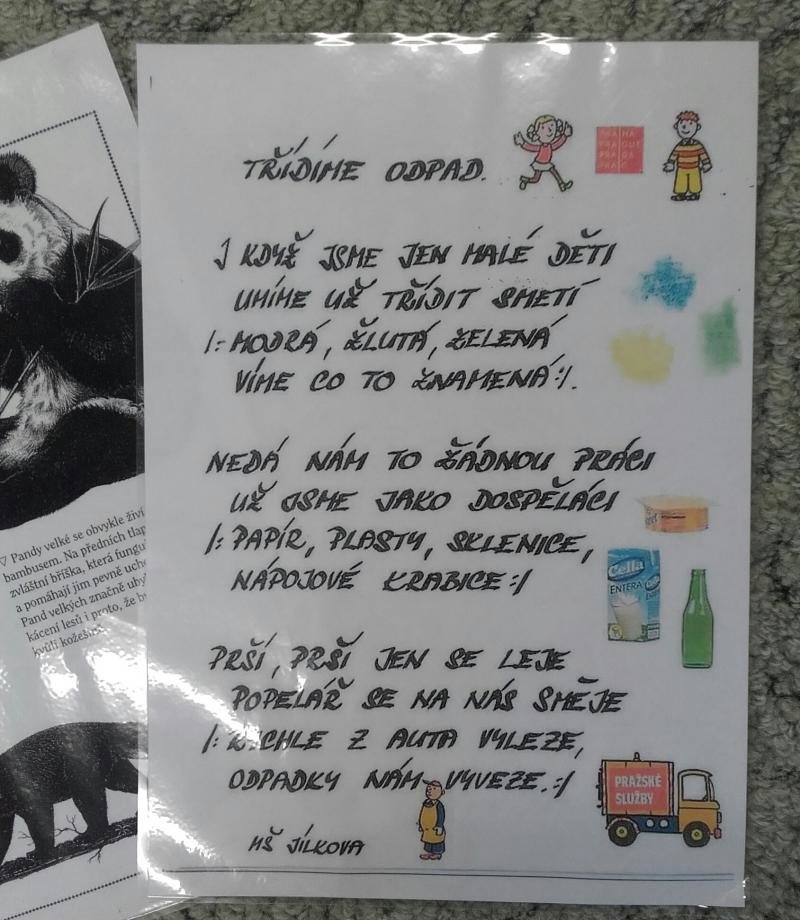 TŘÍDÍME ODPAD.
PRA HA
PRA GUE
PRA GA
PRA G
I KDYŽ JSME JEN MALÉ DĚTI
UMÍME UŽ TŘÍDIT SMETÍ
/: MODRÁ, ŽLUTÁ, ZELENÁ
VÍME CO TO ZNAMENÁ :/.
NEDÁ NÁM TO ŽÁDNOU PRÁCI
UŽ JSME JAKO DOSPĚLÁCI
/: PAPÍR, PLASTY, SKLENICE,
NÁPOJOVÉ KRABICE :/
Cella
ENTERA
PRŠÍ, PRŠÍ JEN SE LEJE
POPELÁŘ SE NA NÁS SMĚJE
/: RYCHLE Z AUTA VYLEZE,
ODPADKY NÁM VYVEZE. :/
PRAŽSKÉ
SLUŽBY
MŠ JÍLKOVA
▽ Pandy velké se obvykle živí
bambusem. Na předních tlap
zvláštní bříška, která fungu
a pomáhají jim pevně ucho
Pand velkých značně uby
kácení lesů i proto, že by
kvůli kožešin